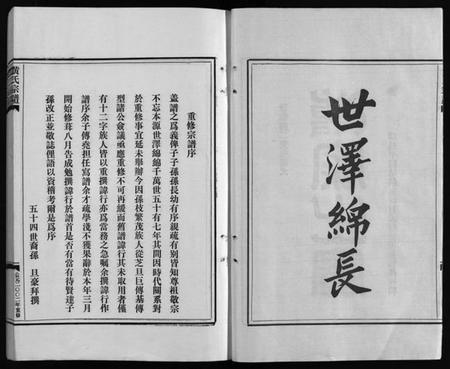 世澤綿長
重修宗譜序
蓋譜之爲義俾子子孫孫長幼有序親疏有別皆知尊祖敬宗
不忘本源世澤綿綿千萬世五十有七年其間因時代關系對
於重修事宜延未舉辦今因孫枝繁茂族人從芝旦巨傳基傳
型諸公僉議亟應重修不可再緩而舊譜諱行其未取用者僅
有十二字族人皆以重撰諱行亦爲當務之急囑余撰諱行作
譜序余子傳堯担任寫譜余才疏學淺不獲果辭於本年三月
開始修葺八月告成勉撰諱行於譜首是否有當有待賢達子
孫改正並敬誌俚語以資稽考爾是爲序
五十四世裔孫 旦豪拜撰
黃氏宗譜
二〇〇二年重修